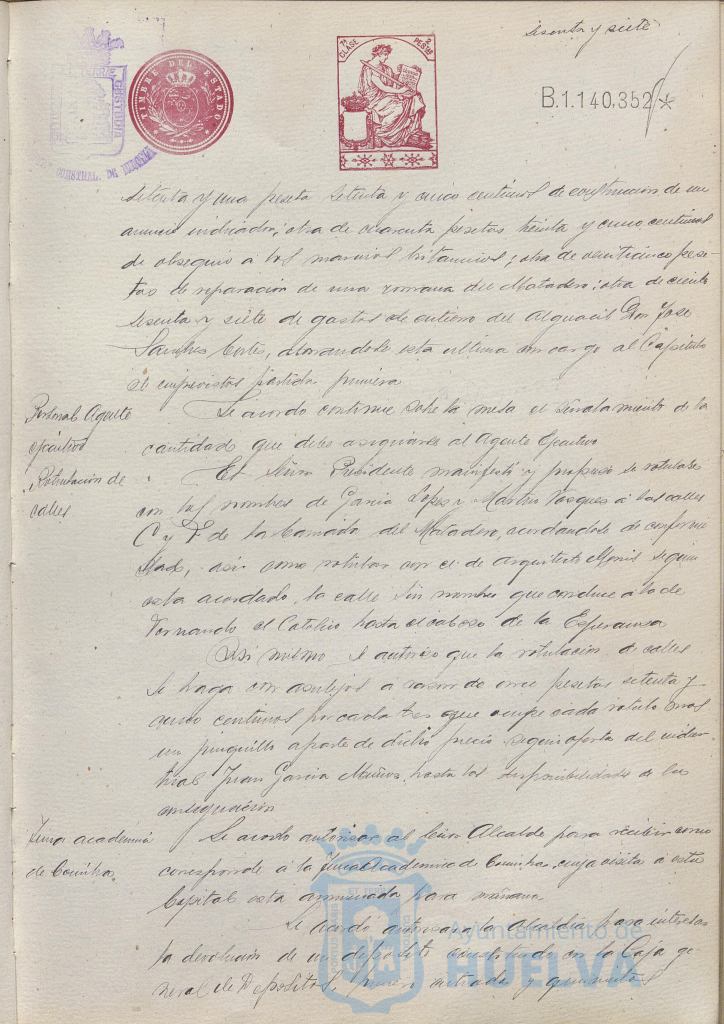 sesenta y siete
TIMBRE DEL ESTADO
7ª CLASE 2 PESTAS
B.1.140,352 *
GESTORA
CONSTNAL. DE HUELVA
setenta y una peseta setenta y cinco centimos de construccion de un
anuncio indicador; otra de cuarenta pesetas treinta y cinco centimos
de obsequio á los marinos britanicos; otra de veinticinco pese-
tas de reparacion de una romana del Matadero; otra de ciento
sesenta y siete de gastos de entierro del Alguacil Don Jose
Sanchez Cortes, abonandose esta ultima con cargo al Capitulo
de imprevistos partida primera
Personal Agente
ejecutivo
Se acordo continue sobre la mesa el señalamiento de la
cantidad que debe asignarse al Agente Ejecutivo
Rotulacion de
calles
El Señor Presidente manifestó y propuso se rotulase
con los nombres de Garcia Lopez y Martin Vazquez á las calles
C y D de la barriada del Matadero, acordandose de conformi
dad, asi como rotular con el de arquitecto Monis segun
esta acordado, la calle sin nombre que conduce á la de
Fernando el Catolico hasta el cabezo de la Esperanza
Asi mismo se autorizo que la rotulacion de calles
se haga con azulejos á razon de once pesetas setenta y
cinco centimos por cada uno que ocupe cada rotulo mas
un pinguillo aparte de dicho precio segun oferta del indus-
trial Juan Garcia Muñoz, hasta las disponibilidades de la
consignacion
Tuna academica
de Coimbra
Se acordo autorizar al Señor Alcalde para recibir como
corresponde á la Tuna Academica de Coimbra, cuya visita a esta
Capital esta anunciada para mañana
Se acordo autorizar a la Alcaldia para interesar
la devolucion de un deposito constituido en la Caja ge
neral de Depositos, numero entrada y quinientos
Ayuntamiento de
HUELVA